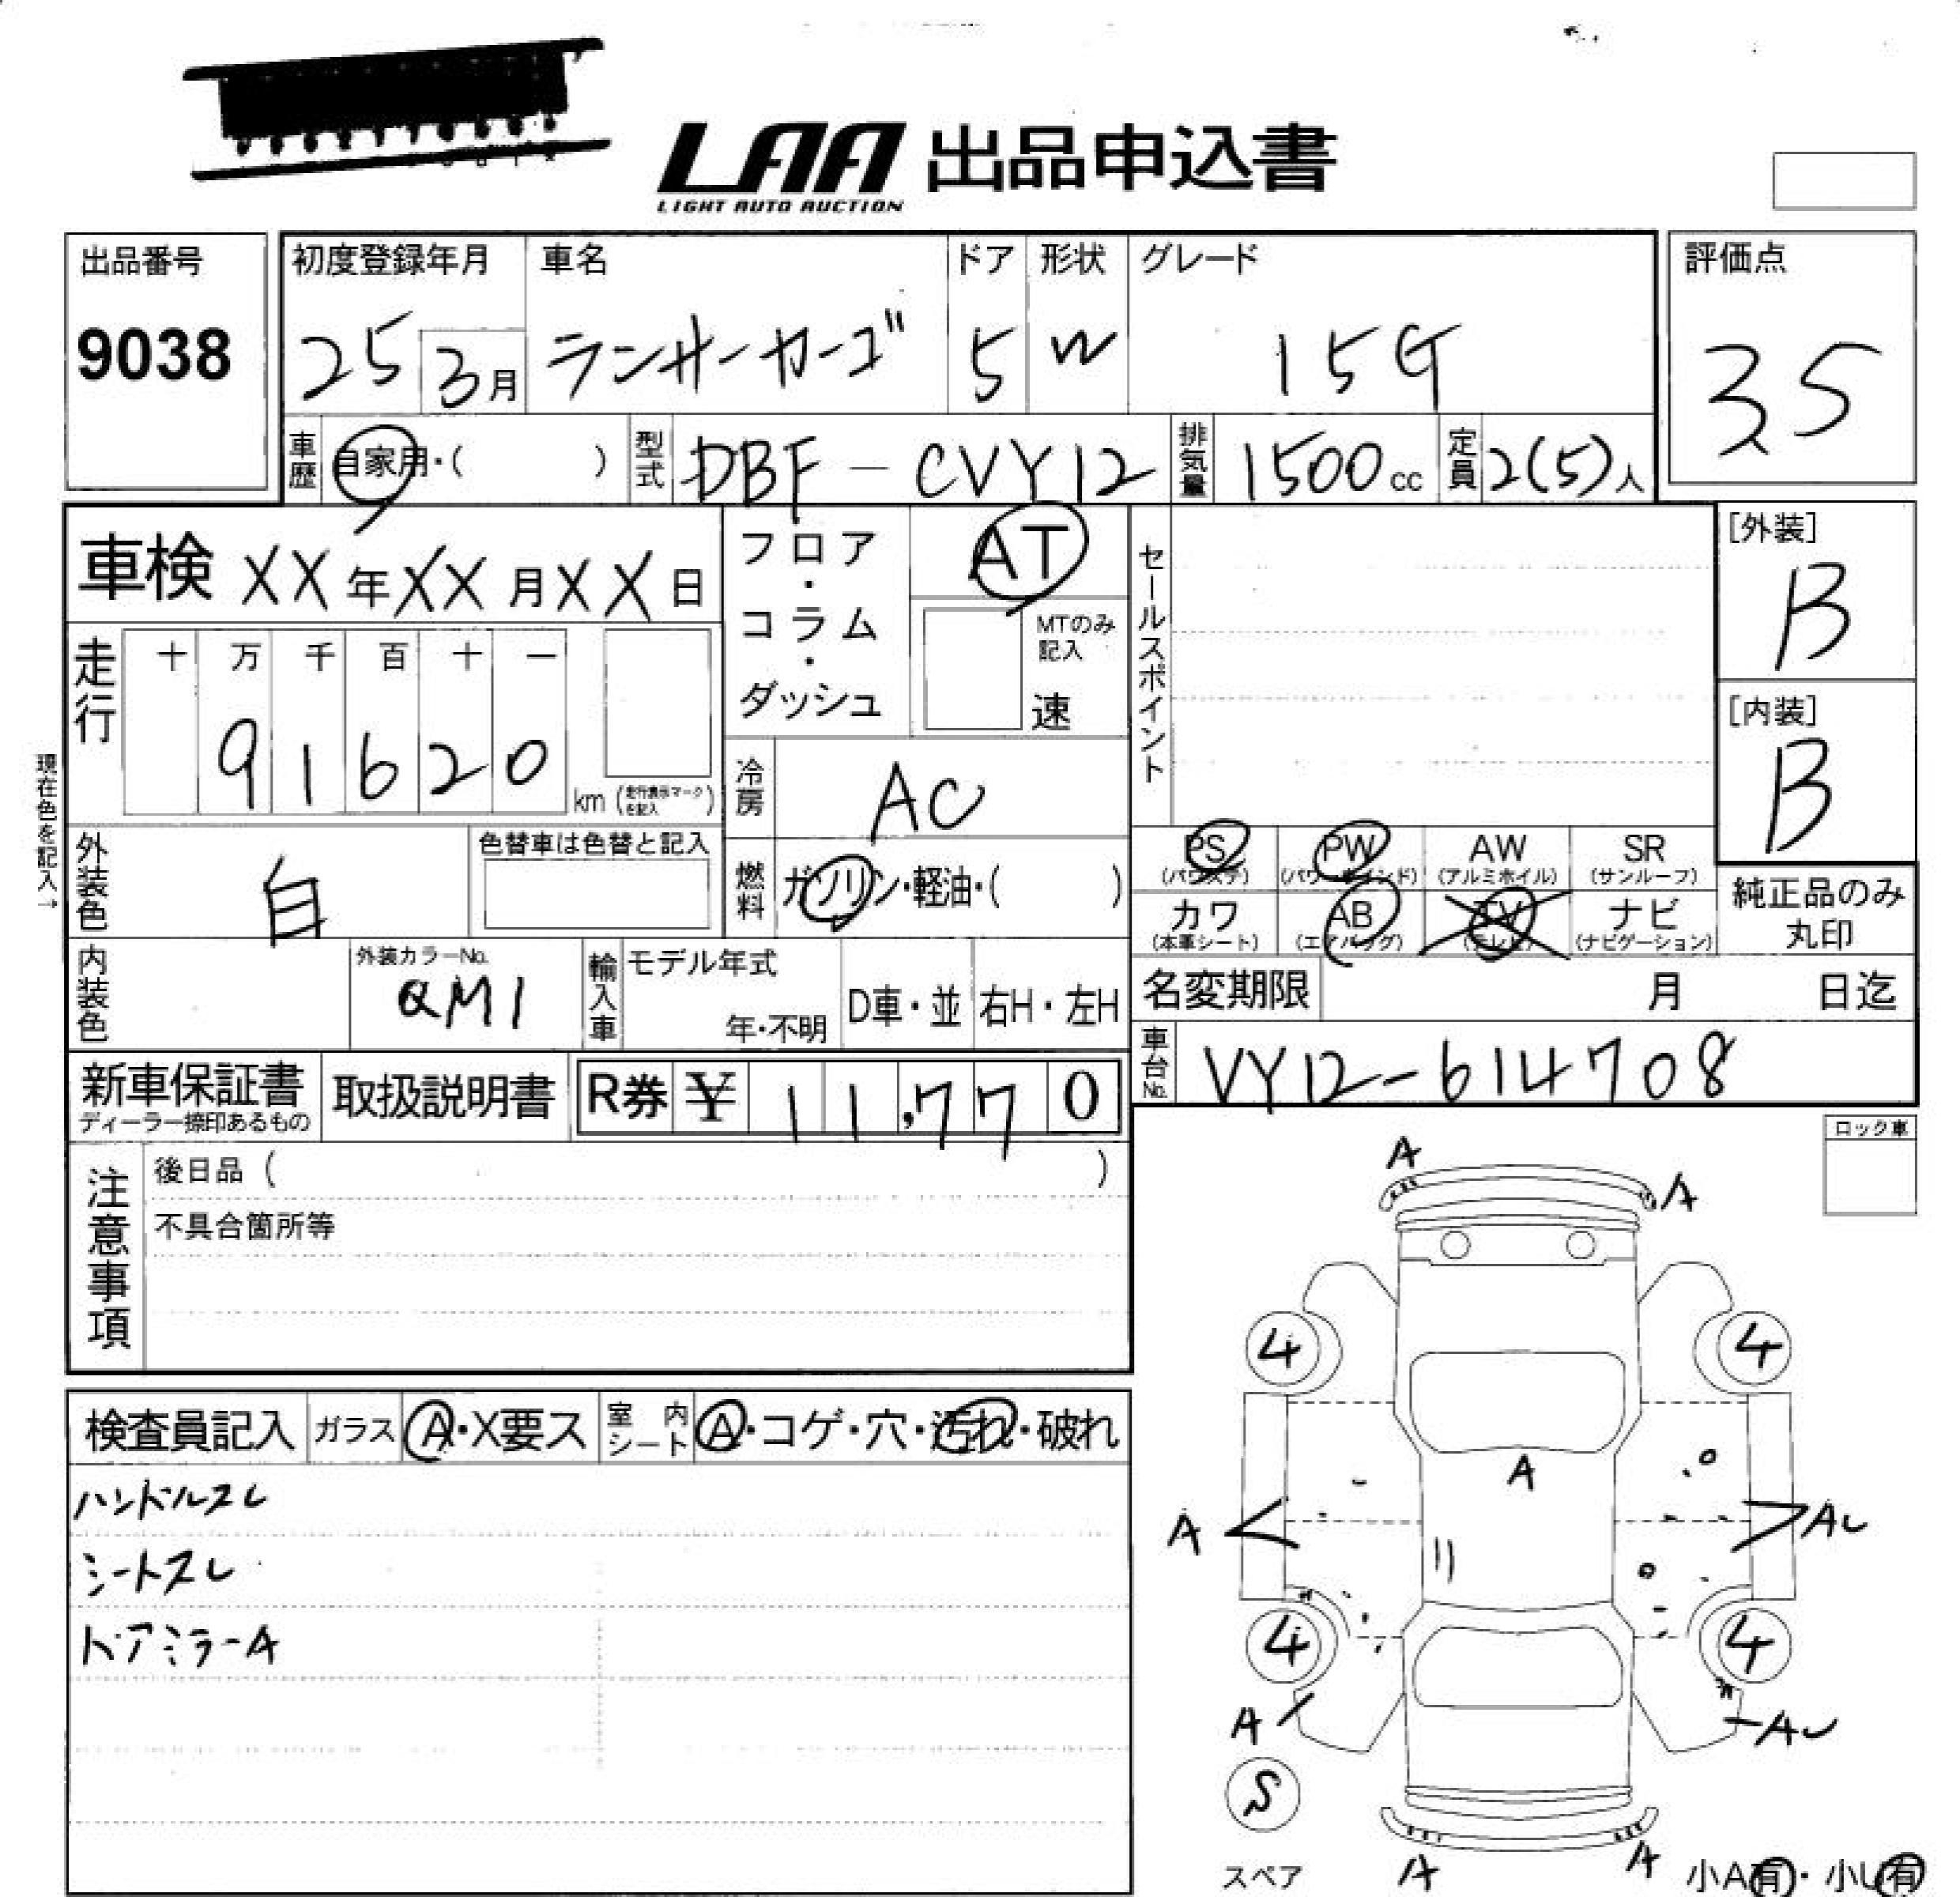 LAA 出品申込書
LIGHT AUTO AUCTION
出品番号
9038
初度登録年月 車名 ドア 形状 グレード
25 3月 ランサーカーゴ 5 W 15G
評価点
3.5
車歴 自家用・( ) 型式 DBF-CVY12 排気量 1500cc 定員 2(5)人
車検 XX年XX月XX日
フロア・コラム・ダッシュ
AT
MTのみ記入
速
セールスポイント
[外装]
B
[内装]
B
走行 十 万 千 百 十 一
91620 km (走行表示マークを記入)
冷房 AC
現在色を記入→
外装色 白
色替車は色替と記入
燃料 ガソリン・軽油・( )
PS (パワステ) PW (パワーウインド) AW (アルミホイル) SR (サンルーフ)
カワ (本革シート) AB (エアバッグ) TV (テレビ) ナビ (ナビゲーション)
純正品のみ丸印
内装色
外装カラーNo.
QM1
輸入車 モデル年式
年・不明
D車・並 右H・左H
名変期限 月 日迄
車台No. VY12-614708
新車保証書
ディーラー捺印あるもの
取扱説明書
R券 ¥ 11,770
注意事項
後日品 ( )
不具合箇所等
ロック車
検査員記入 ガラス A・X要ス 室内シート A・コゲ・穴・汚れ・破れ
ハンドルスレ
シートスレ
ドアミラーA
A
A
4 4
A
A AU
4 4
A AU
S
スペア
A A
小A有・小U有